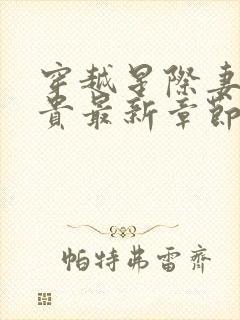 穿越星際妻
貴最新章節
帕特弗雷齊